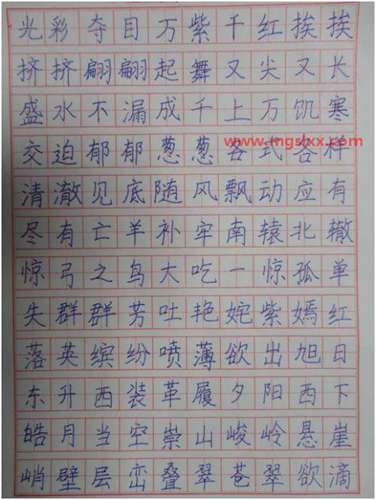 光彩夺目万紫千红挨挨
挤挤翩翩起舞又尖又长
盛水不漏成千上万饥寒
www.mgshxx.com
交迫郁郁葱葱各式各样
清澈见底随风飘动应有
尽有亡羊补牢南辕北辙
惊弓之鸟大吃一惊孤单
失群群芳吐艳姹紫嫣红
落英缤纷喷薄欲出旭日
东升西装革履夕阳西下
皓月当空崇山峻岭悬崖
峭壁层峦叠翠苍翠欲滴